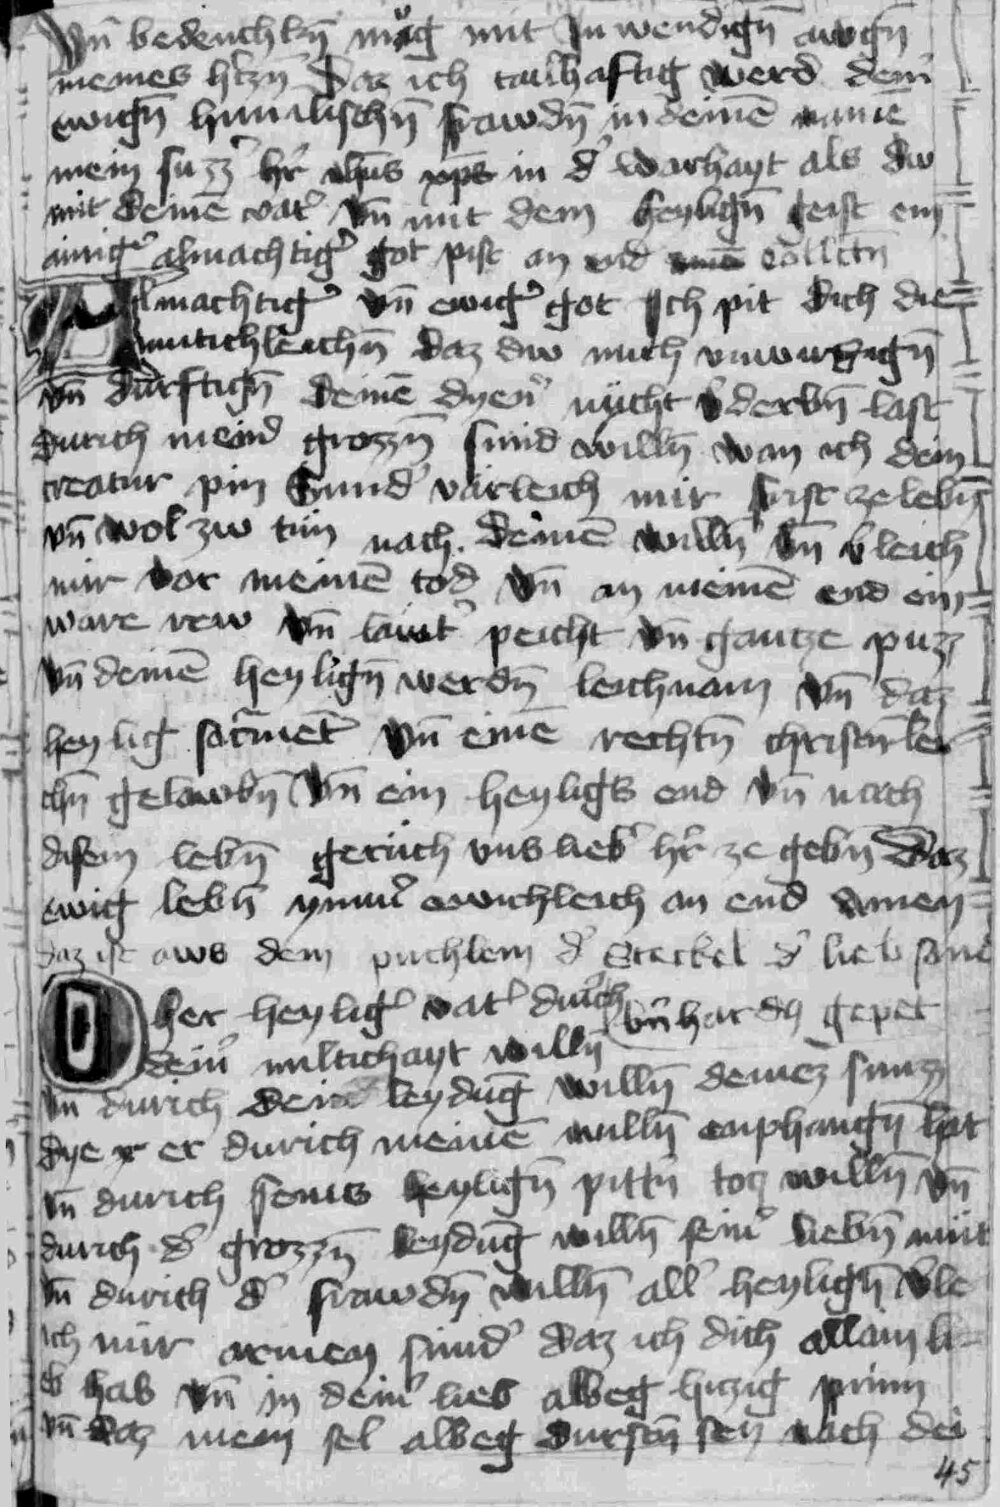 Vn̄ bedenchkn̄ mug mit Inwendign̄ awgn̄
meines hˀczn̄ Daz ich tailhaftig werd deinˀ
ewign̄ himilischn̄ frawdn̄ in deinē namē
mein suzzˀ hˀr ihūs xp̄s in dˀ warhayt als dw
mit deinē vatˀ Vn̄ mit dem heylign̄ geist ein
ainigˀ almachtigˀ got pist an end collctn̄
Almachtigˀ Vn̄ ewigˀ got Ich pit dich die
mutichleichn̄ daz dw mich vnwirdign̄
vn̄ durftign̄ deinē dyenˀ nicht vˀderbn̄ last
durich meinˀ grozzn̄ sund willn̄ wan ich dein
creatur pin Sundˀ varleich mir frist ze lebn̄
vn̄ wol zw tun nach deinē willn̄ Vn̄ vˀleich
mir vor meinē tod Vn̄ an meinē end ein
ware rew Vn̄ lautˀ peicht Vn̄ gantze puzz
Vn̄ deinē heylign̄ werdn̄ leichnam Vn̄ daz
heylig sacrmētˀ Vn̄ einē rechtn̄ christnlei
chn̄ gelawbn̄ Vn̄ ein heyligs end Vn̄ nach
disem lebn̄ geruch vns liebˀ hˀr ze gebn̄ Daz
ewig lebn̄ ymmˀ ewichleich an end Amen
daz ist aws dem puchlein dˀ Steckel dˀ lieb sand
O her heyligˀ vatˀ durich bn̄hardꝫ gepet
deinˀ miltichayt willn̄
Vn̄ durich der leydūg willn̄ deinez sunz
dye er durich meinē willn̄ enphangn̄ hat
Vn̄ durich seins heylign̄ pittˀn tod willn̄ Vn̄
durich dˀ grozzn̄ leydūg willn̄ seinˀ liebn̄ mūt
Vn̄ durich dˀ frawdn̄ willn̄ allˀ heylign̄ vˀle
ich mir armen sundˀ daz ich dich allain li-
eb hab Vn̄ in deinˀ lieb albeg hiczig prinn
Vn̄ daz mein sel albeg durstn̄ sey nach dei
45